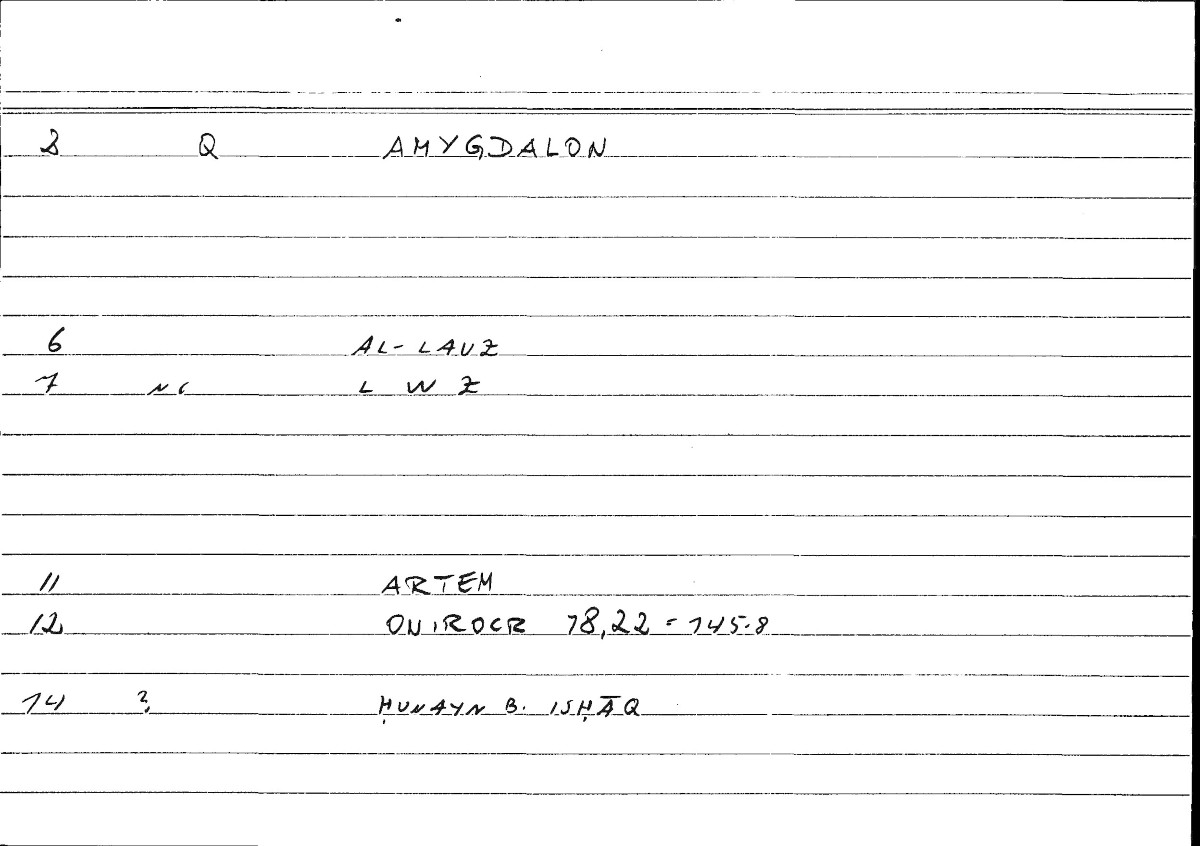 2 Q AMYGDALON
6 AL-LAUZ
7 NC L W Z
11 ARTEM
12 ONIROCR 18,22 = 145.8
14 ? ḤUNAYN B. ISḤĀQ